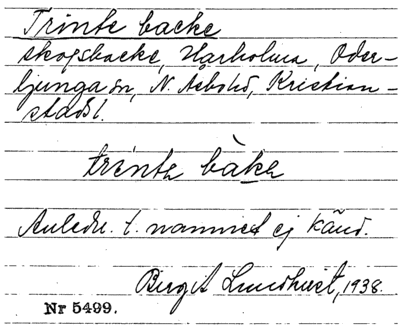 Trinte backe
skogsbacke, Harholma, Oder-
ljunga sn, N. Åsbohd, Kristian-
stads l.
trinte bàke
Anledn. t. namnet ej känd.
Birgit Lundqvist, 1938.
Nr 5499.